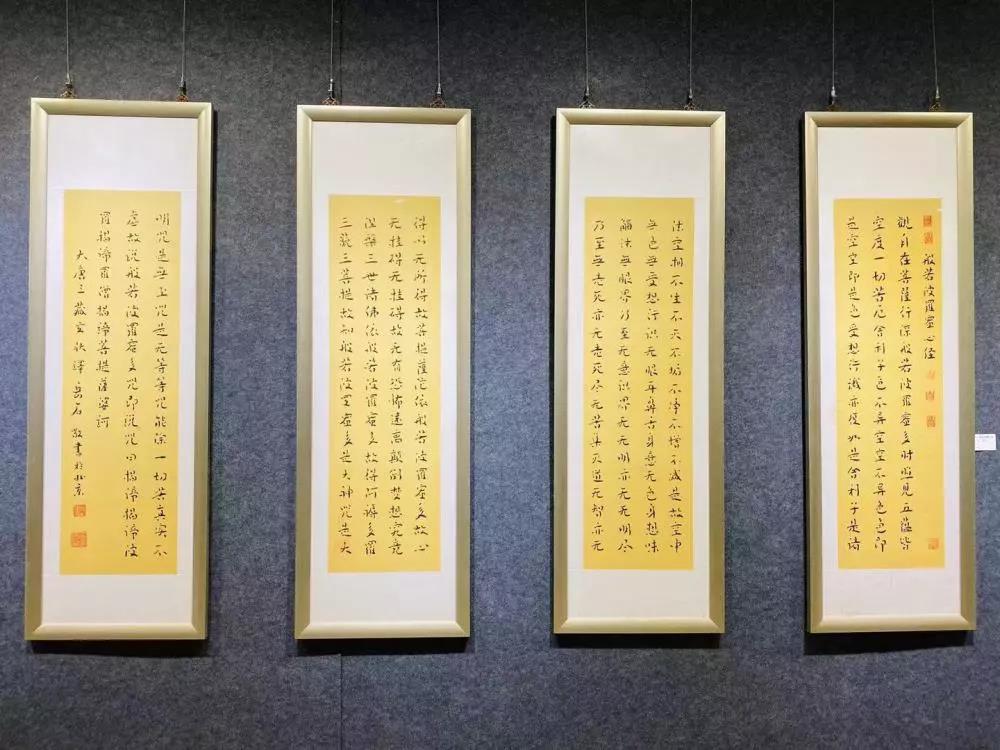 般若波羅蜜心经
觀自在菩薩行深般若波羅蜜多时照見五蕴皆
空度一切苦厄舍利子色不异空空不异色色即
是空空即是色受想行識亦復如是舍利子是诸
法空相不生不灭不垢不净不增不减是故空中
無色無受想行识无眼耳鼻舌身意无色声香味
触法無眼界乃至无意识界无无明亦无无明尽
乃至無老死亦无老死尽无苦集灭道无智亦无
得以无所得故菩提薩陀依般若波羅蜜多故心
无挂碍无挂碍故无有恐怖遠离颠倒梦想究竟
涅槃三世诸佛依般若波羅蜜多故得阿耨多羅
三藐三菩提故知般若波罗蜜多是大神咒是大
明咒是無上咒是无等等咒能除一切苦真实不
虚故说般若波羅蜜多咒即说咒曰揭谛揭谛波
羅揭谛羅僧揭谛菩提薩婆訶
大唐三藏玄奘译 岳石敬書於北京